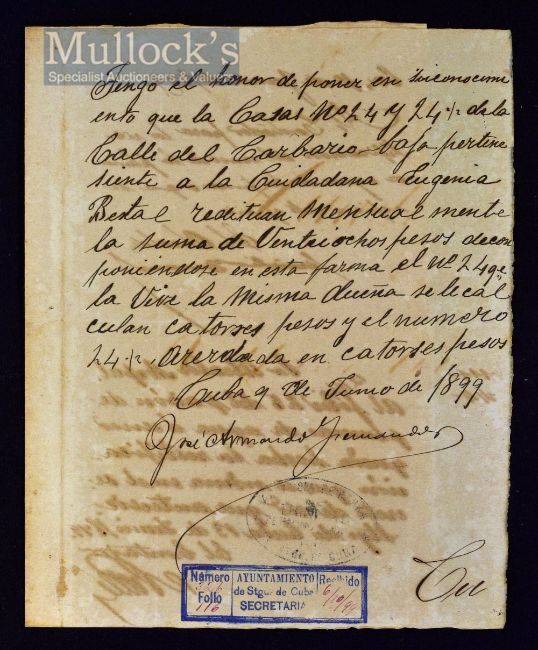 Mullock's
Specialist Auctioneers & Valuers
Tengo el honor de poner en suiconocimi
ento que la Casas Nº 24 y 24 ½ de la
Calle del Carbario baja pertene
siente a la Cuidadana Eugenia
Bestal redituan Mensual mente
la suma de Ventiochos pesos decon
poniendose en esta farma el Nº 24 qe
la Vive la Misma dueña se le cal
culan catorses pesos y el numero
24 ½ arerdada en catorses pesos
Cuba 9 de Junio de 1899
José Armando Fernandes
Número
Folio 116
AYUNTAMIENTO
de Stgo. de Cuba
SECRETARIA
Recibido
Cu